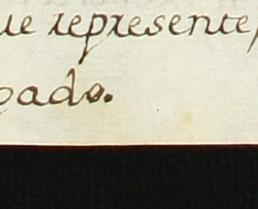 ue represente,
pado.